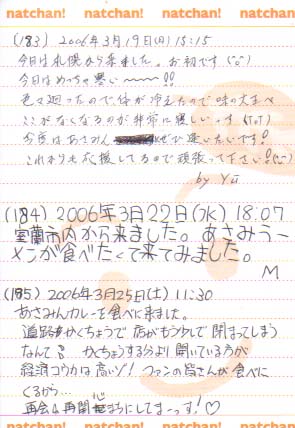 natchan! natchan! natchan! natchan!
(183) 2006年3月19日(日) 15:15
今日は札幌から来ました。お初です
今日はめっちゃ寒い〜〜〜!!
色々廻ったので体が冷えたので味の大王へ
ここがなくなるのが非常に寂しいっす(T_T)
今度はあさみんぜひ逢いたいです!
これからも応援してるので頑張って下さい!
by Yū
(184) 2006年3月22日(水) 18:07
室蘭市内から来ました。あさみラー
メンが食べたくて来てみました。
M
(185) 2006年3月25日(土) 11:30
あさみんカレーを食べに来ました。
道路かくちょうで店がもう少しで閉まってしまう
なんて かくちょうする分より開いている方が
経済コウカは高いゾ! ファンの皆さんが食べに
くるから…
再会&再開 まっす!♡
natchan! natchan! natchan! natchan!